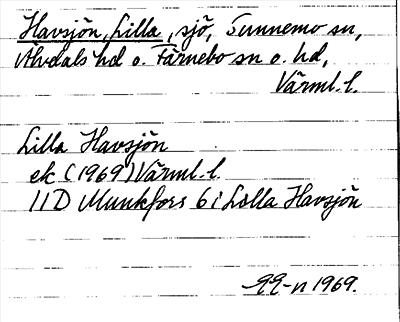 Havsjön, Lilla, sjö, Sunnemo sn,
Älvdals hd o. Färnebo sn o. hd,
Värml. l.
Lilla Havsjön
ek (1969) Värml. l.
11D Munkfors 6i Lilla Havsjön
-n 1969.